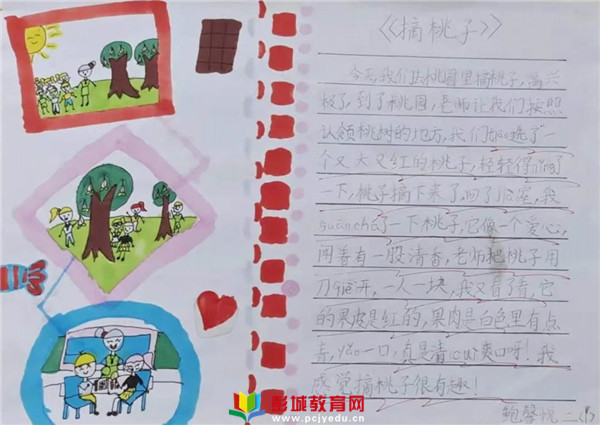 《摘桃子》
今天我们去桃园里摘桃子,高兴
极了,到了桃园,老师让我们按照
认领桃树的地方,我们选了一
个又大又红的桃子,轻轻得
一下,桃子摘下来了,回了教室,我
guānchá了一下桃子,它像一个爱心,
闻着有一股清香,老师把桃子用
刀qiē开,一人一块,我又看了看,它
的果皮是红的,果肉是白色里有点
青,yǎo一口,真是清cuì爽口呀!我
感觉摘桃子很有趣!
鲍馨悦 二
彭城教育网
www.pcjyedu.cn